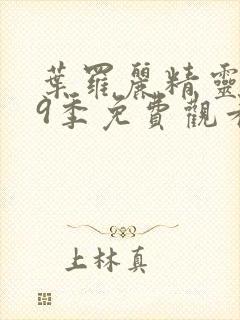 葉羅麗精靈
9季免費觀
上林真